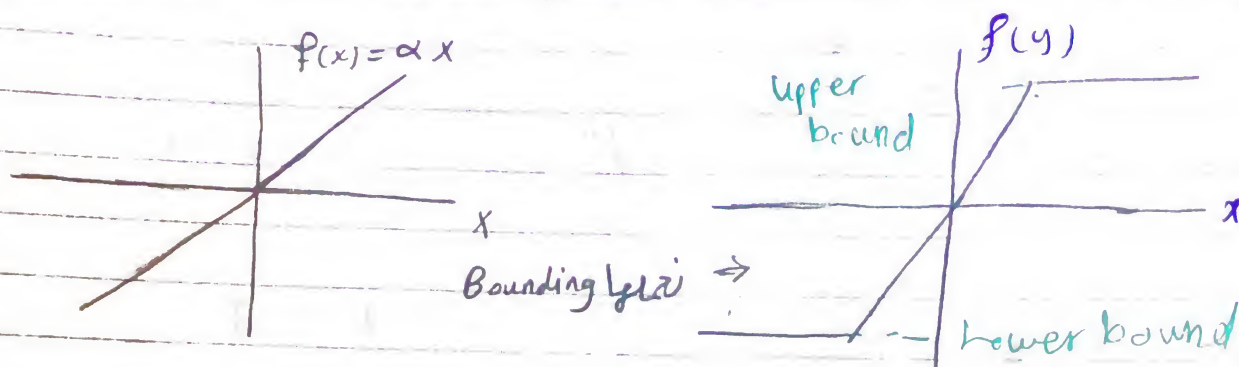 f(x) = α x
x
Bounding ⇒
f(y)
upper
bound
x
Lower bound